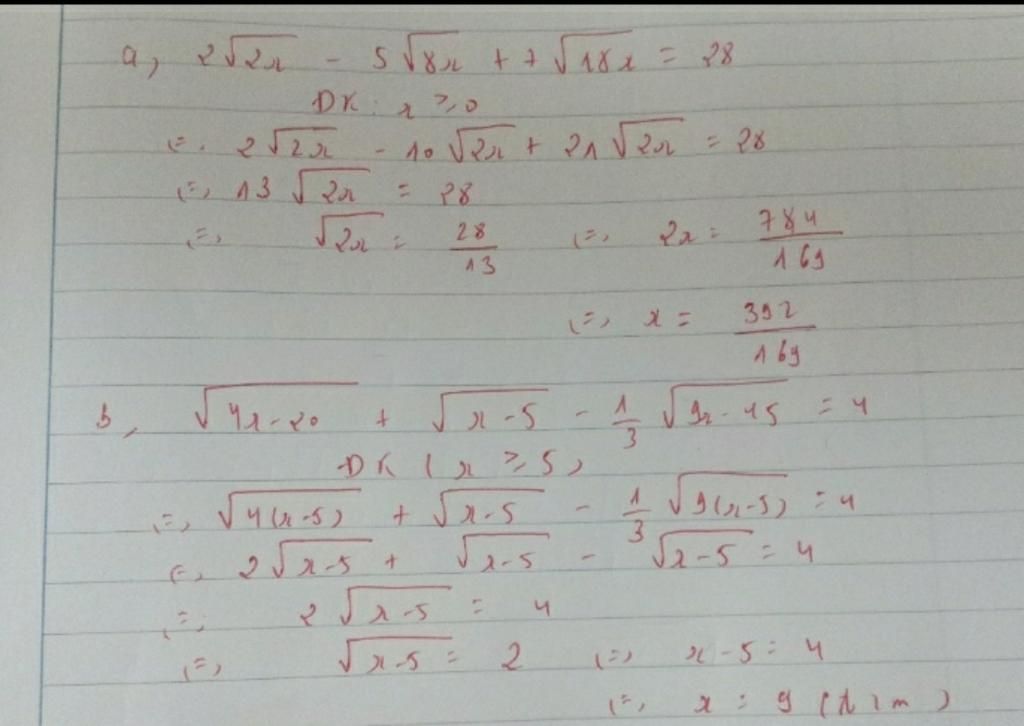 a, 2√2x - 5√8x + 7√18x = 28
ĐK: x ≥ 0
(=) 2√2x - 10√2x + 21√2x = 28
(=) 13√2x = 28
(=) √2x = 28/13 (=) 2x = 784/169
(=) x = 392/169
b, √4x-20 + √x-5 - 1/3 √9x-45 = 4
ĐK (x ≥ 5)
(=) √4(x-5) + √x-5 - 1/3 √9(x-5) = 4
(=) 2√x-5 + √x-5 - √x-5 = 4
(=) 2√x-5 = 4
(=) √x-5 = 2 (=) x-5 = 4
(=) x = 9 (t/m)